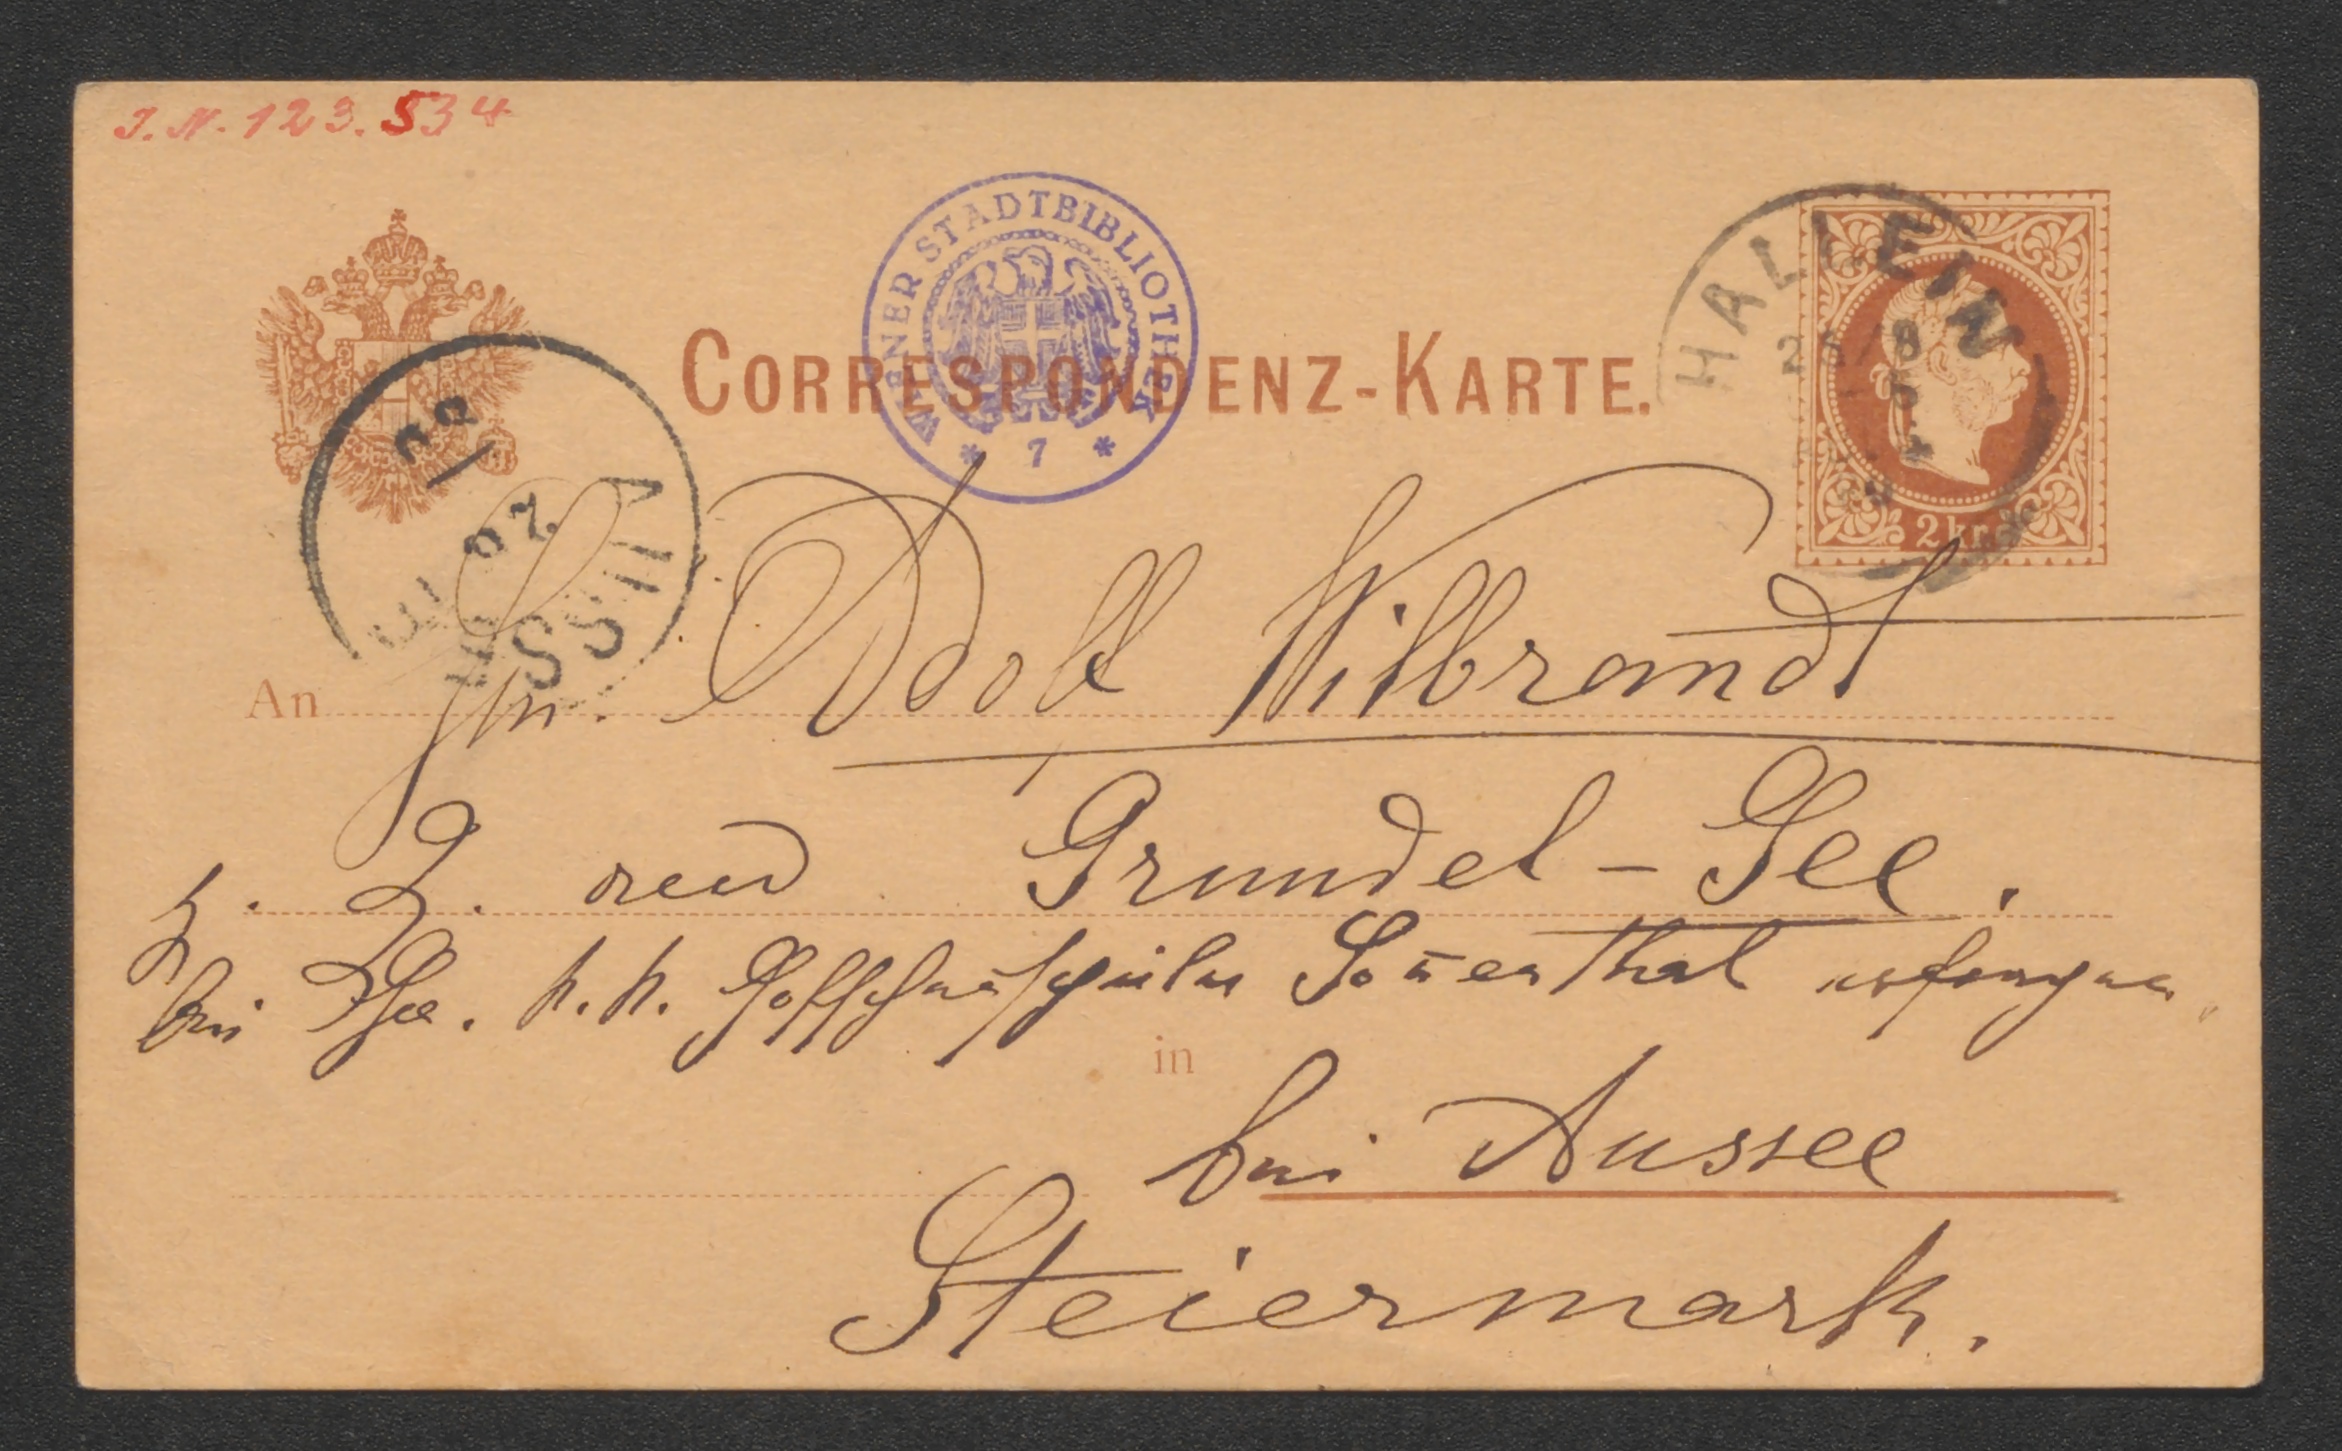 I.N. 123.534
WIENER STADTBIBLIOTHEK
* 7 *
CORRESPONDENZ-KARTE.
HALLEIN
2 kr.
AUSSEE
An Hrn. Adolf Wilbrandt
Grundel-See.
bei k. k. Hofschauspieler Sonenthal
in
bei Aussee
Steiermark.